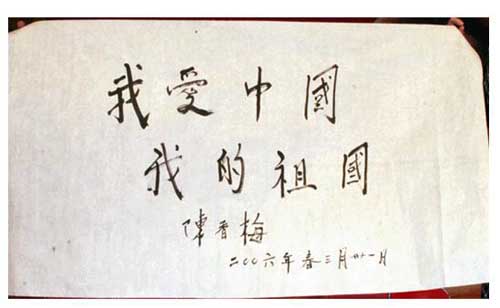 我愛中國
我的祖國
陳香梅
二〇〇六年春三月卅一日